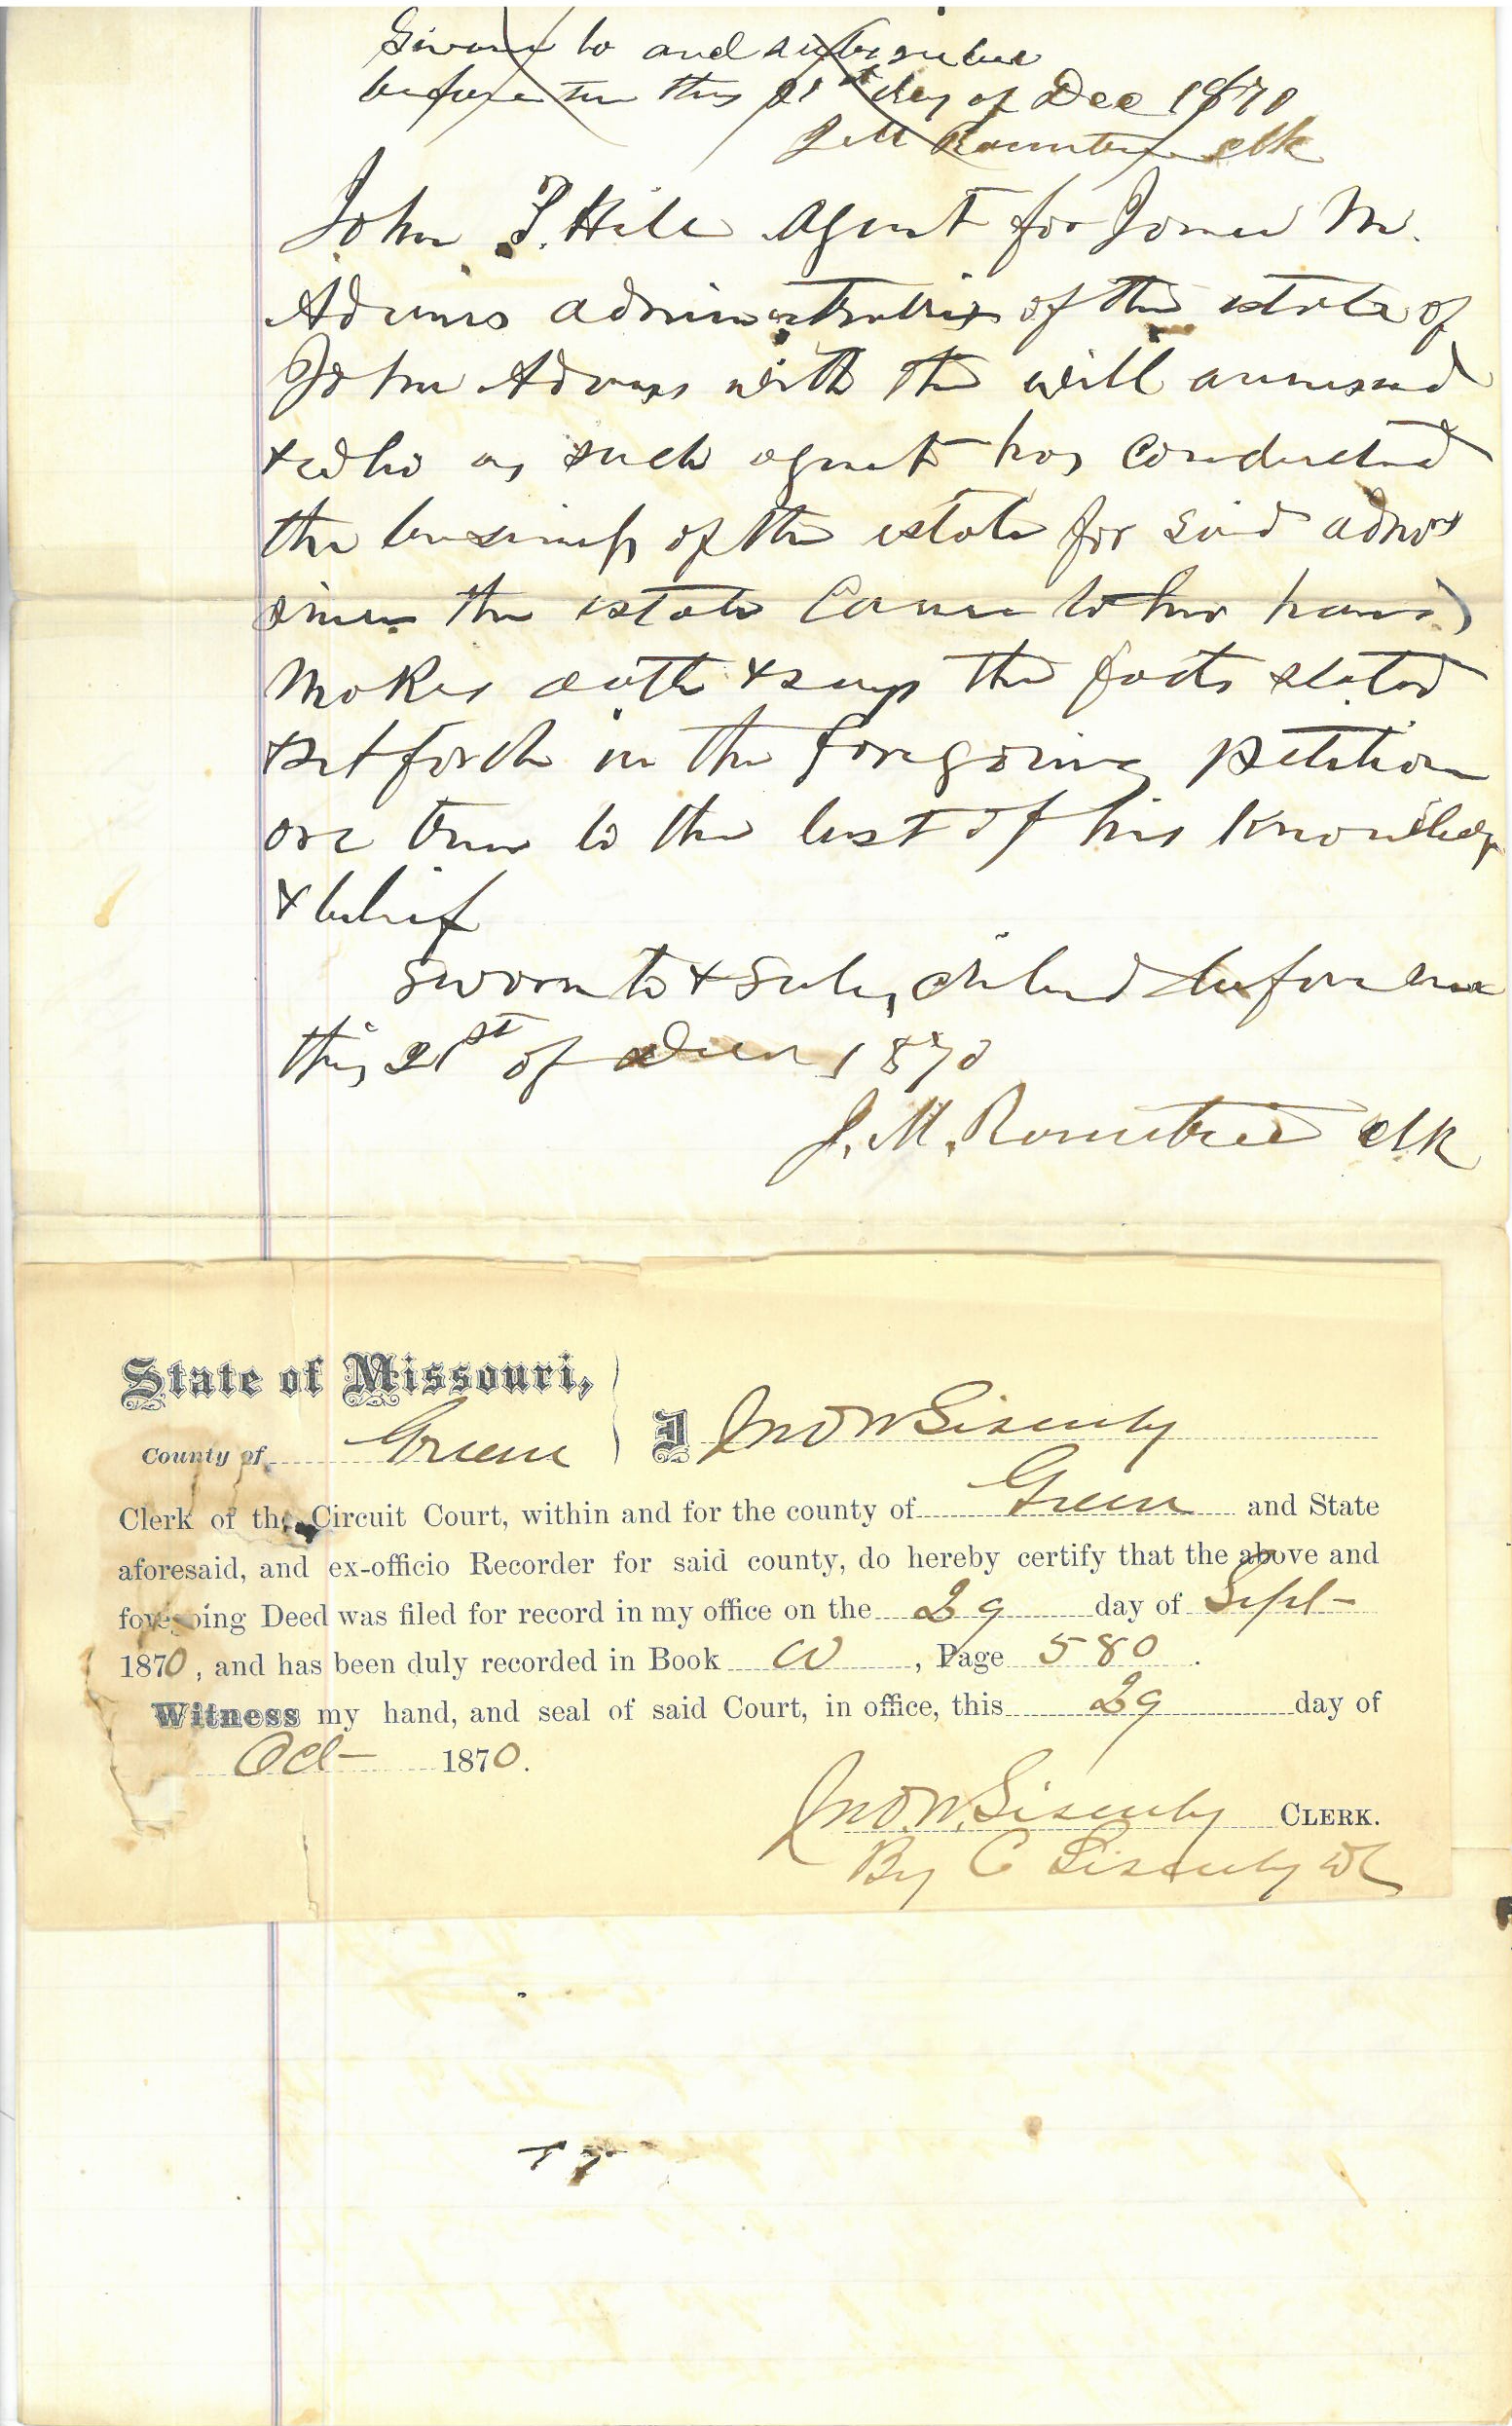 Sworn to and subscribed
before me this 21st day of Dec 1870
J M Rountree clk
John T. Hill agent for M.
Adams administratrix of the estate of
John Adams with the will annexed
& who as such agent has conducted
the business of the estate for said admrx
since the estate came to her hands)
makes oath & says the facts stated
& set forth in the foregoing petition
are true to the best of his knowledge
& belief
Sworn to & subscribed before me
this 21st of 1870
J. M. Rountree clk
State of Missouri,
County of Greene
I Jno W Lisenby
Clerk of the Circuit Court, within and for the county of Greene and State
aforesaid, and ex-officio Recorder for said county, do hereby certify that the above and
foregoing Deed was filed for record in my office on the 29 day of Sept
1870, and has been duly recorded in Book W, Page 580.
Witness my hand, and seal of said Court, in office, this 29 day of
Oct 1870.
Jno. W. Lisenby CLERK.
By C Lisenby DC